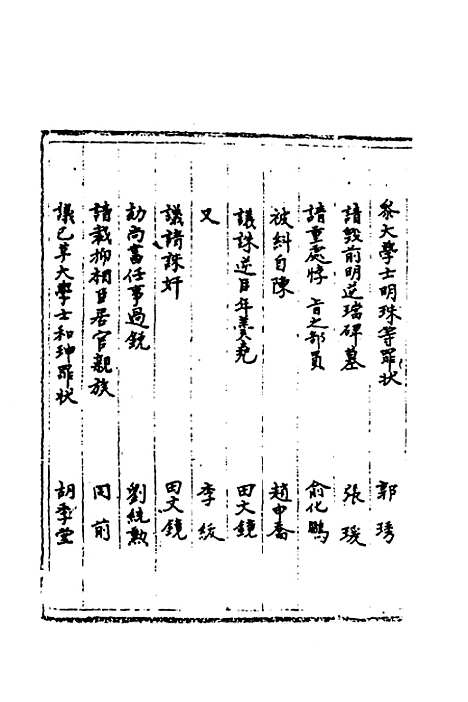 參大學士明珠等罪狀 郭琇
請毀前明逆璫碑墓 張瑗
請重處悖 旨之部員 俞化鵬
被糾自陳 趙申喬
議誅逆臣年羹堯 田文鏡
又 李紱
議請誅奸 田文鏡
劾尚書任事過銳 劉統勳
請裁抑相臣居官親族 同前
議已革大學士和珅罪狀 胡季堂